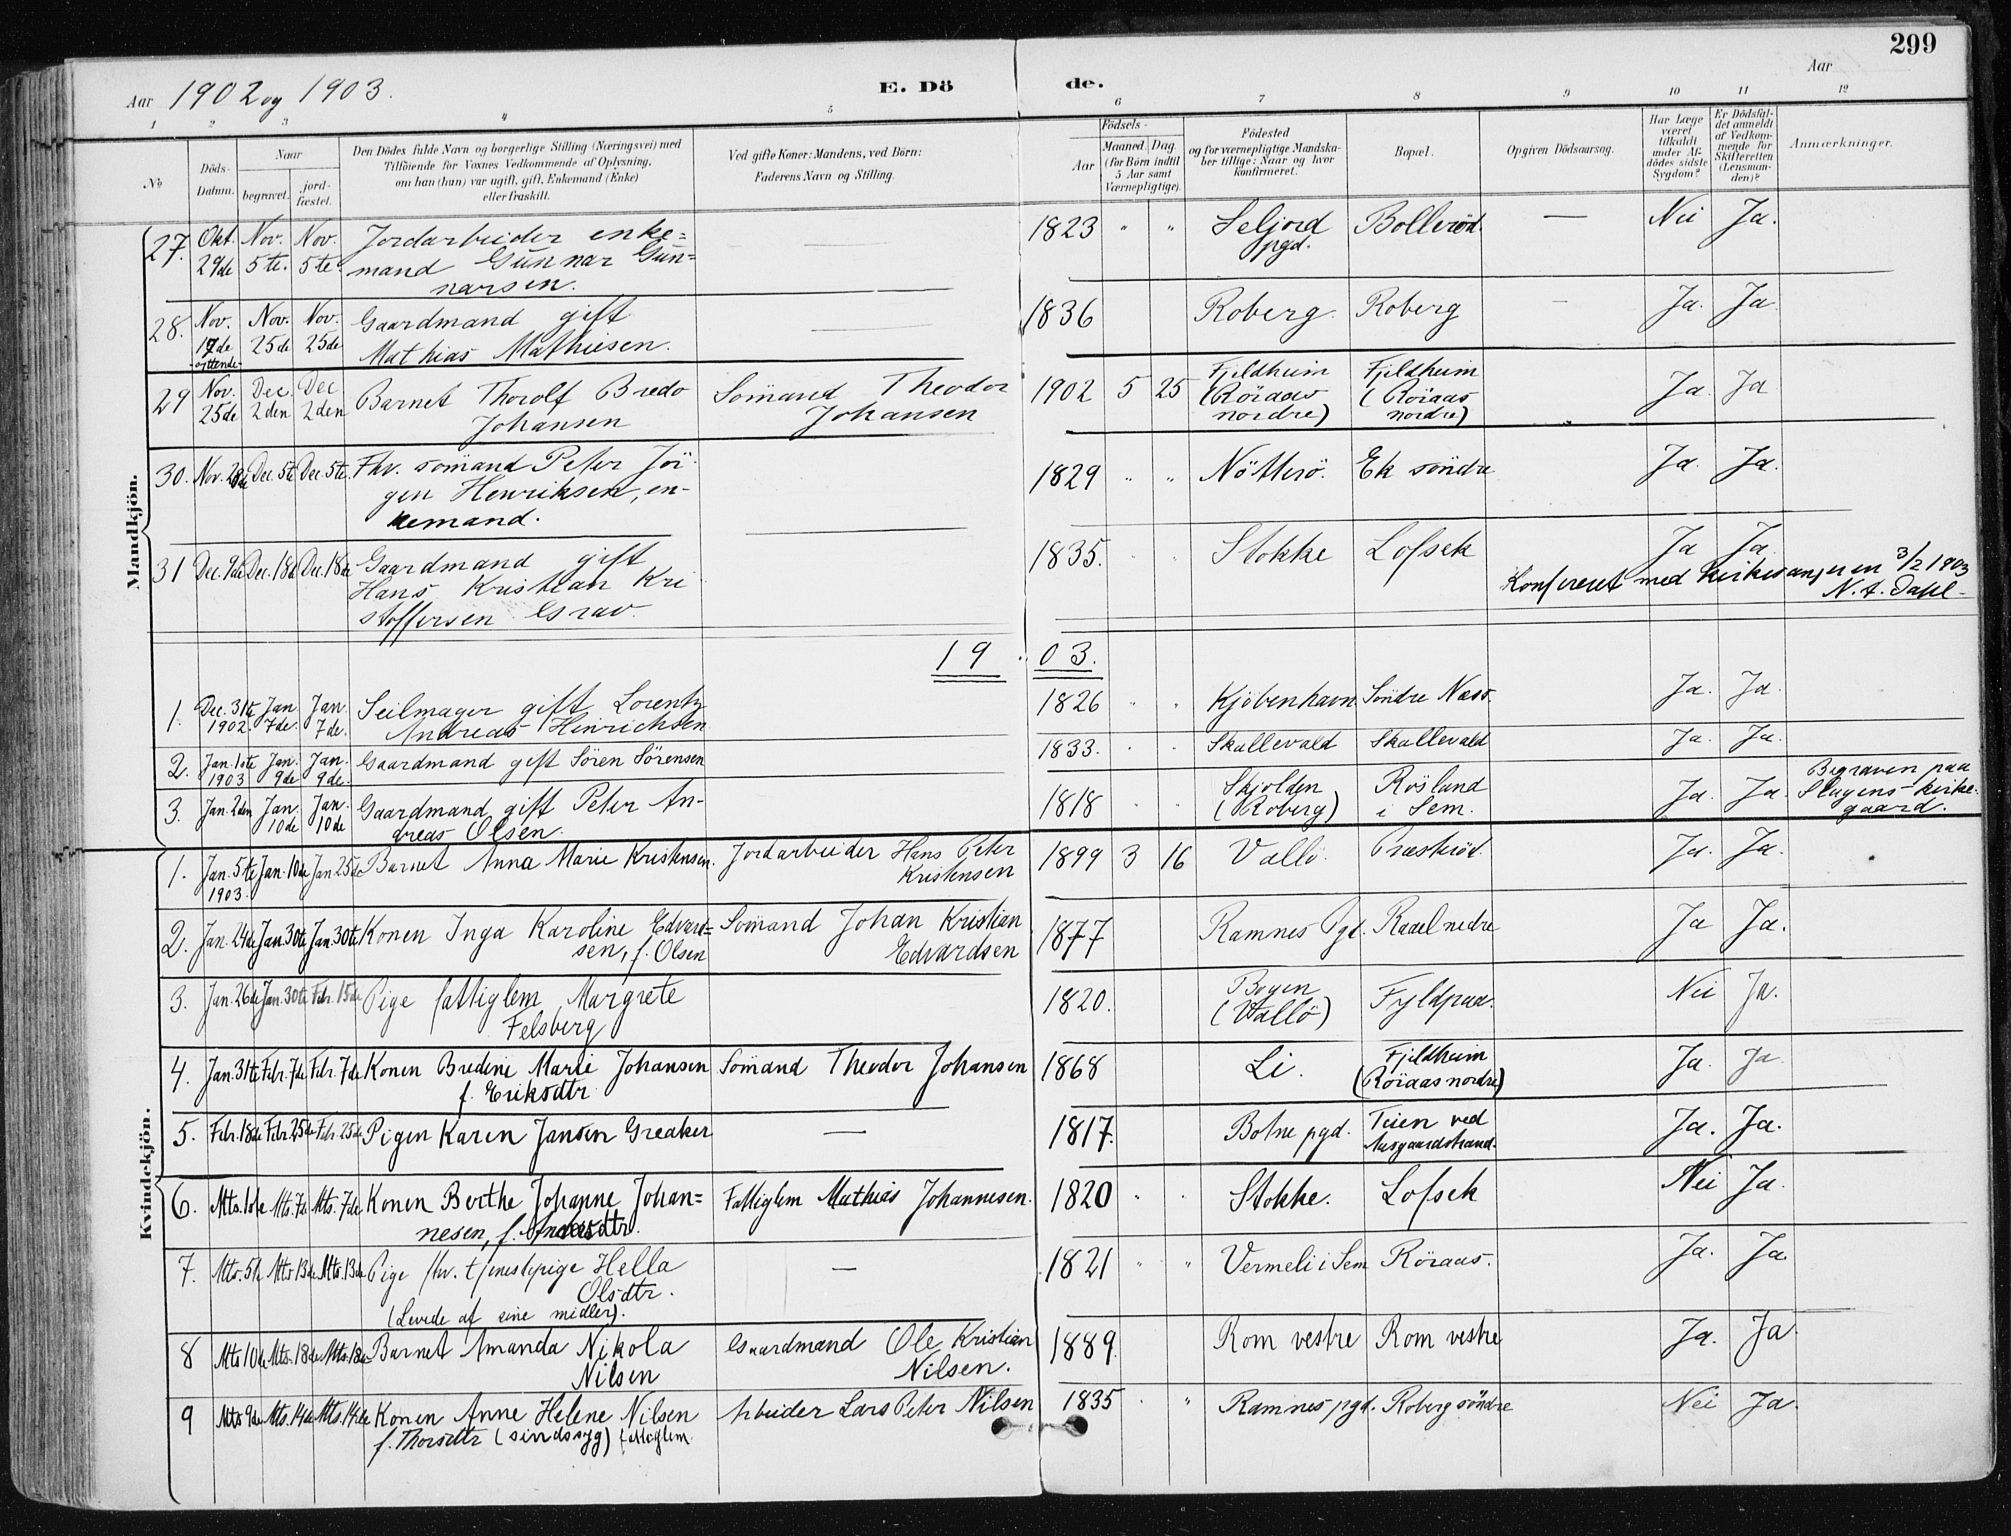 299
Aar 1902 og 1903.
E. Döde.
Aar
1 2 3 4 5 6 7 8 9 10 11 12
No
Döds-Datum.
Naar
begravet.
jordfæstet.
Den Dödes fulde Navn og borgerlige Stilling (Næringsvei) med
Tilföiende for Voxnes Vedkommende af Oplysning,
om han (hun) var ugift, gift, Enkemand (Enke)
eller fraskilt.
Ved gifte Koner: Mandens, ved Börn:
Faderens Navn og Stilling.
Födsels-
Aar
Maaned. Dag.
(for Börn indtil
5 Aar samt
Værnepligtige).
Födested
og for værnepligtige Mandskaber tillige: Naar og hvor
konfirmeret.
Bopæl.
Opgiven Dödsaarsag.
Har Læge
været
tilkaldt
under Afdödes sidste
Sygdom?
Er Dödsfaldet anmeldt
af Vedkommende for
Skifteretten
(Lensmanden)?
Anmærkninger.
Mandkjön.
27. Okt. 29de Nov. 5te. Nov. 5te. Jordarbeider enke=
mand Gunnar Gun=
narsen.
1823 " " Seljord pgd. Bolleröd. — Nei Ja.
28. Nov. 17de syttende Nov. 25de Nov. 25de Gaardmand gift
Mathias Mathiesen.
1836 Roberg. Roberg — Ja. Ja.
29 Nov. 25de Dec. 2den Dec 2den Barnet Thorolf Bredo
Johansen
Sömand Theodor
Johansen
1902 5 25 Fjeldheim (Röraas nordre) Fjeldheim (Röraas nordre) Ja. Ja
30. Nov. 28de Dec. 5te Dec. 5te. Fhv. sömand Peter Jör-
gen Henriksen, en-
kemand.
1829 " " Nötterö. Ek söndre Ja. Ja.
31 Dec. 9de Dec. 18de Dec. 18de Gaardmand gift
Hans Kristian Kri
stoffersen Grav.
1835. Stokke Lofsek Ja Ja
Konfereret med kirkesangeren 3/2 1903
N. A. Dahl
1903.
1. Dec. 31te 1902. Jan 7de. Jan. 7de. Seilmager gift Lorentz
Andreas Hinrichsen
1826 " " Kjöbenhavn Söndre Næss. Ja. Ja.
2. Jan. 1ste 1903 Jan. 9de Jan. 9de. Gaardmand gift Sören Sörensen
1833. Skallevald Skallevald Ja. Ja.
3. Jan. 2den Jan. 10de Jan. 10de Gaardmand gift Peter An-
dreas Olsen.
1818 Skjolden (Roberg) Rösland i Sem. Ja. Ja.
Begraven paa
Slagens kirke-
gaard.
Kvindekjön.
1. Jan. 5te 1903. Jan. 10de Jan 25de Barnet Anna Marie Kristensen.
Jordarbeider Hans Peter
Kristensen
1899 3 16 Vallö. Præsteröd. Ja. Ja.
2. Jan. 24de Jan. 30te Jan. 30te Konen Inga Karoline Edvard=
sen, f. Olsen
Sömand Johan Kristian
Edvardsen
1877 Ramnes Pgd. Raael nedre Ja Ja.
3. Jan. 26de Jan. 30te Febr. 15de Pige fattiglem Margrete
Felsberg
1820. Bogen (Vallö) Fyldpaa. Nei Ja.
4. Jan. 31te Febr. 7de Febr. 7de Konen Bredine Marie Johansen
f. Eriksdtr.
Sömand Theodor Johansen
1868 Li. Fjeldheim (Röraas nordre) Ja. Ja.
5. Febr. 18de Febr. 25de Febr. 25de Pigen Karen Jansen Greaker
—
1817. Botne pgd. Teien ved Aasgaardstrand. Ja. Ja.
6. Mts. 1ste Mts. 7de Mts. 7de Konen Berthe Johanne Johan=
nesen, f. Andersdtr.
Fattiglem Mathias Johannesen.
1820 " " Stokke. Lofsek Nei Ja.
7. Mts. 5te Mts 13de Mts. 13de Pige fhv. tjenestepige Hella
Olsdtr.
(Levede af sine midler).
—
1821 " " Vermeli i Sem Röraas. Ja. Ja.
8 Mts 10de Mts. 18de Mts. 18de Barnet Amanda Nikola
Nilsen
Gaardmand Ole Kristian
Nilsen.
1889. Rom vestre Rom vestre Ja. Ja.
9 Mts 9de Mts. 14de Mts. 14de Konen Anne Helene Nilsen
f. Thorsdtr (sindssyg)
Arbeider Lars Peter Nilsen
1835 " Ramnes pgd. Roberg söndre Nei Ja.